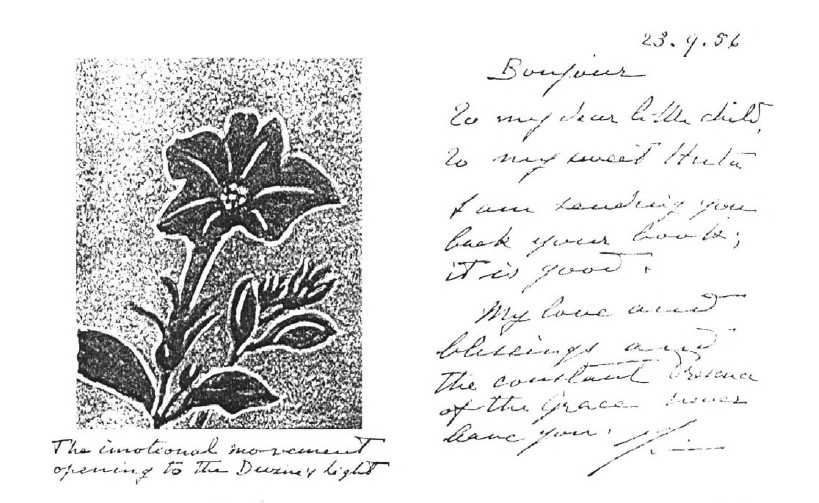 The emotional movement
opening to the Divine's Light
23.9.56
Bonjour
To my dear little child,
To my sweet Huta
I am sending you
back your book;
it is good.
My love and
blessings and
the constant Presence
of the Grace never
leave you.